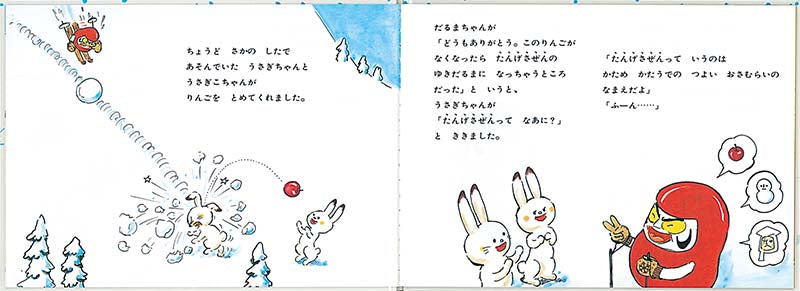 ちょうど さかの したで
あそんでいた うさぎちゃんと
うさぎこちゃんが
りんごを とめてくれました。
だるまちゃんが
「どうもありがとう。このりんごが
なくなったら たんげさぜんの
ゆきだるまに なっちゃうところ
だった」と いうと、
うさぎちゃんが
「たんげさぜんって なあに？」
と ききました。
「たんげさぜんって いうのは
かため かたうでの つよい おさむらいの
なまえだよ」
「ふーん……」